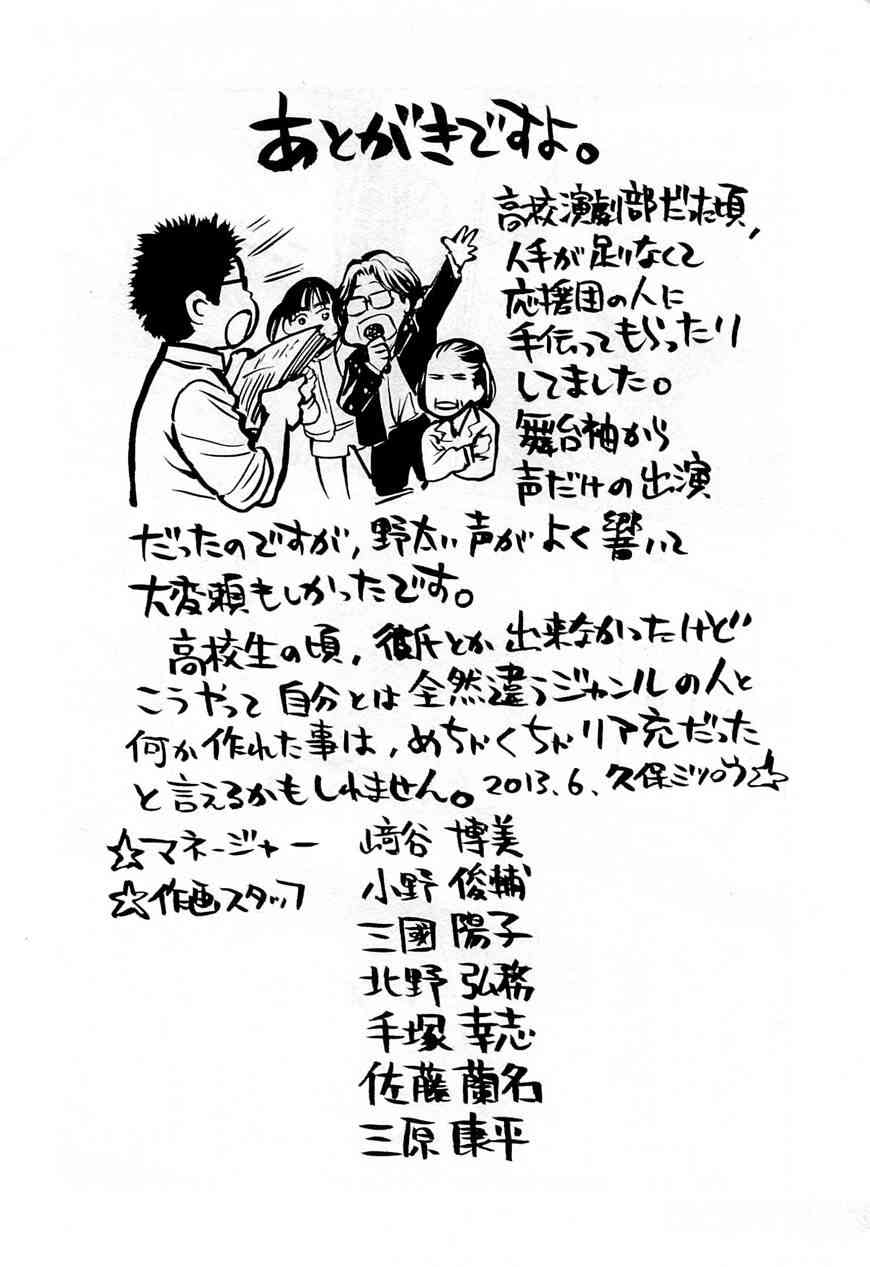 あとがきですよ。
高校演劇部だった頃,
人手が足りなくて
応援団の人に
手伝ってもらったり
してました。
舞台袖から
声だけの出演
だったのですが,野太い声がよく響いて
大変頼もしかったです。
高校生の頃,彼氏とか出来なかったけど
こうやって自分とは全然違うジャンルの人と
何か作れた事は,めちゃくちゃリア充だった
と言えるかもしれません。2013.6.久保ミツロウ☆
☆マネージャー 﨑谷 博美
☆作画スタッフ 小野 俊輔
三國 陽子
北野 弘務
手塚 幸志
佐藤 蘭名
三原 康平